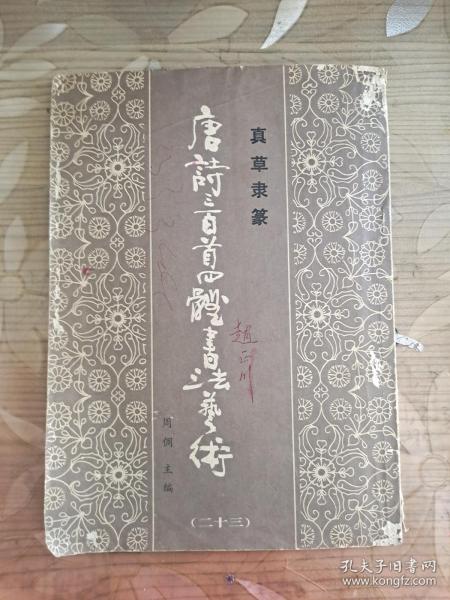 真草隶篆
唐詩三百首四體書法藝術
趙正川
周倜 主编
(二十三)
孔夫子旧书网
www.kongfz.com